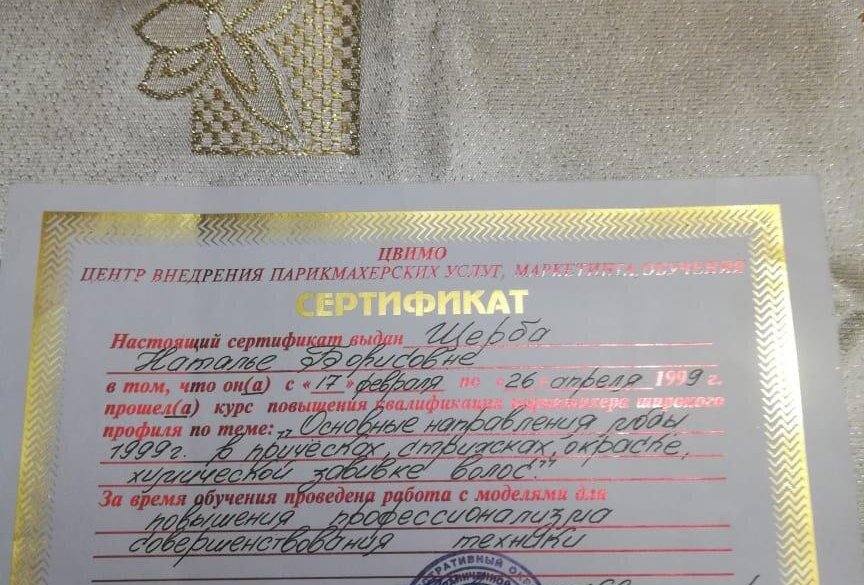 ЦВИМО
ЦЕНТР ВНЕДРЕНИЯ ПАРИКМАХЕРСКИХ УСЛУГ, МАРКЕТИНГА, ОБУЧЕНИЯ
СЕРТИФИКАТ
Настоящий сертификат выдан Щерба
Наталье Борисовне
в том, что он(а) с «17» февраля по «26» апреля 1999 г.
прошел(а) курс повышения квалификации парикмахера широкого
профиля по теме: „Основные направления моды
1999г. в причёсках, стрижках, окраске,
химической завивке волос."
За время обучения проведена работа с моделями для
повышения профессионализма
совершенствования техники